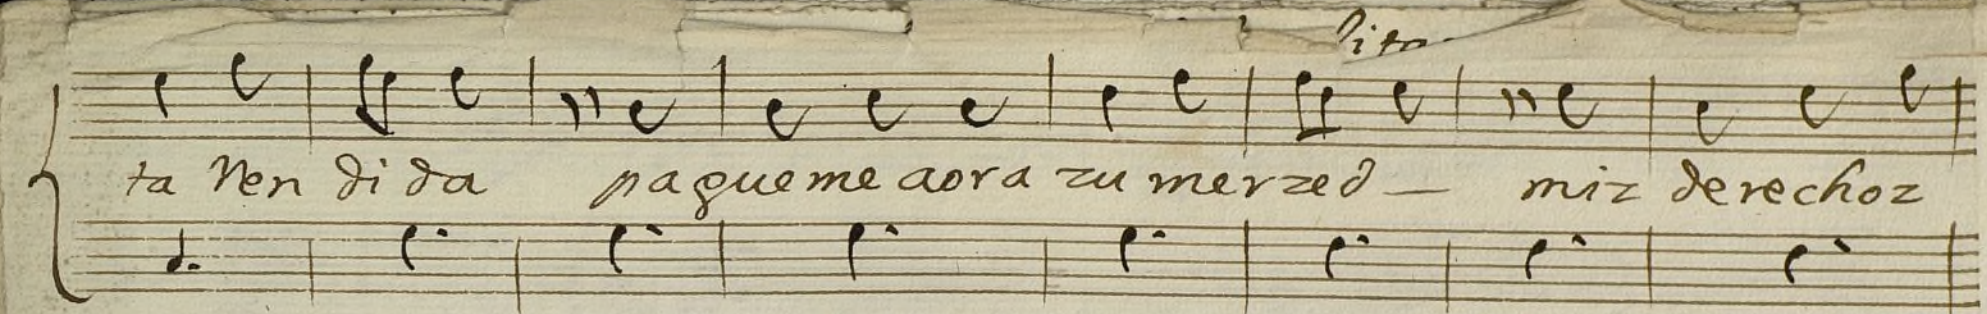 ta Ven di da pagueme aora zu merzed — miz derechoz